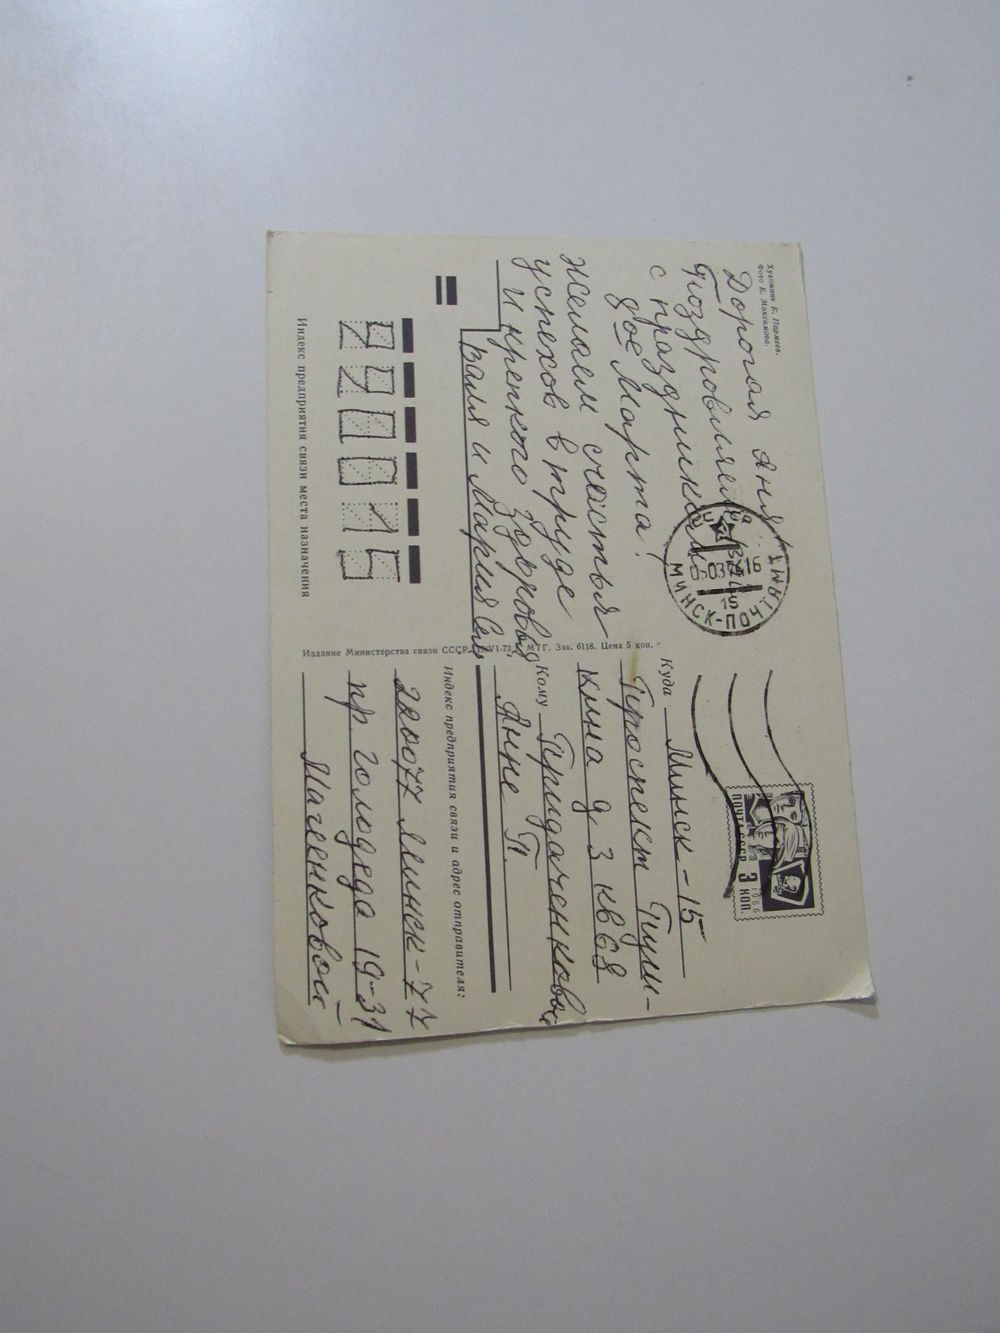 Художник Б. Пармеев.
Фото Б. Максимова.
Дорогая Аня!
Поздровляем
с праздником
8ое Марта!
Желаем счастья
успехов в труде
и крепкого здоровья
Валя и Мария Сем
220015
Индекс предприятия связи места назначения
Издание Министерства связи СССР. МТГ. Зак. 6118. Цена 5 коп.
МИНСК-ПОЧТАМТ
15
ПОЧТА СССР 3 КОП.
1966
Куда Минск-15
Проспект Пуш-
кина д 3 кв 68
Кому Придаченковой
Анне П.
Индекс предприятия связи и адрес отправителя:
220077 Минск-77
пр Голодеда 19-31
Маченковой